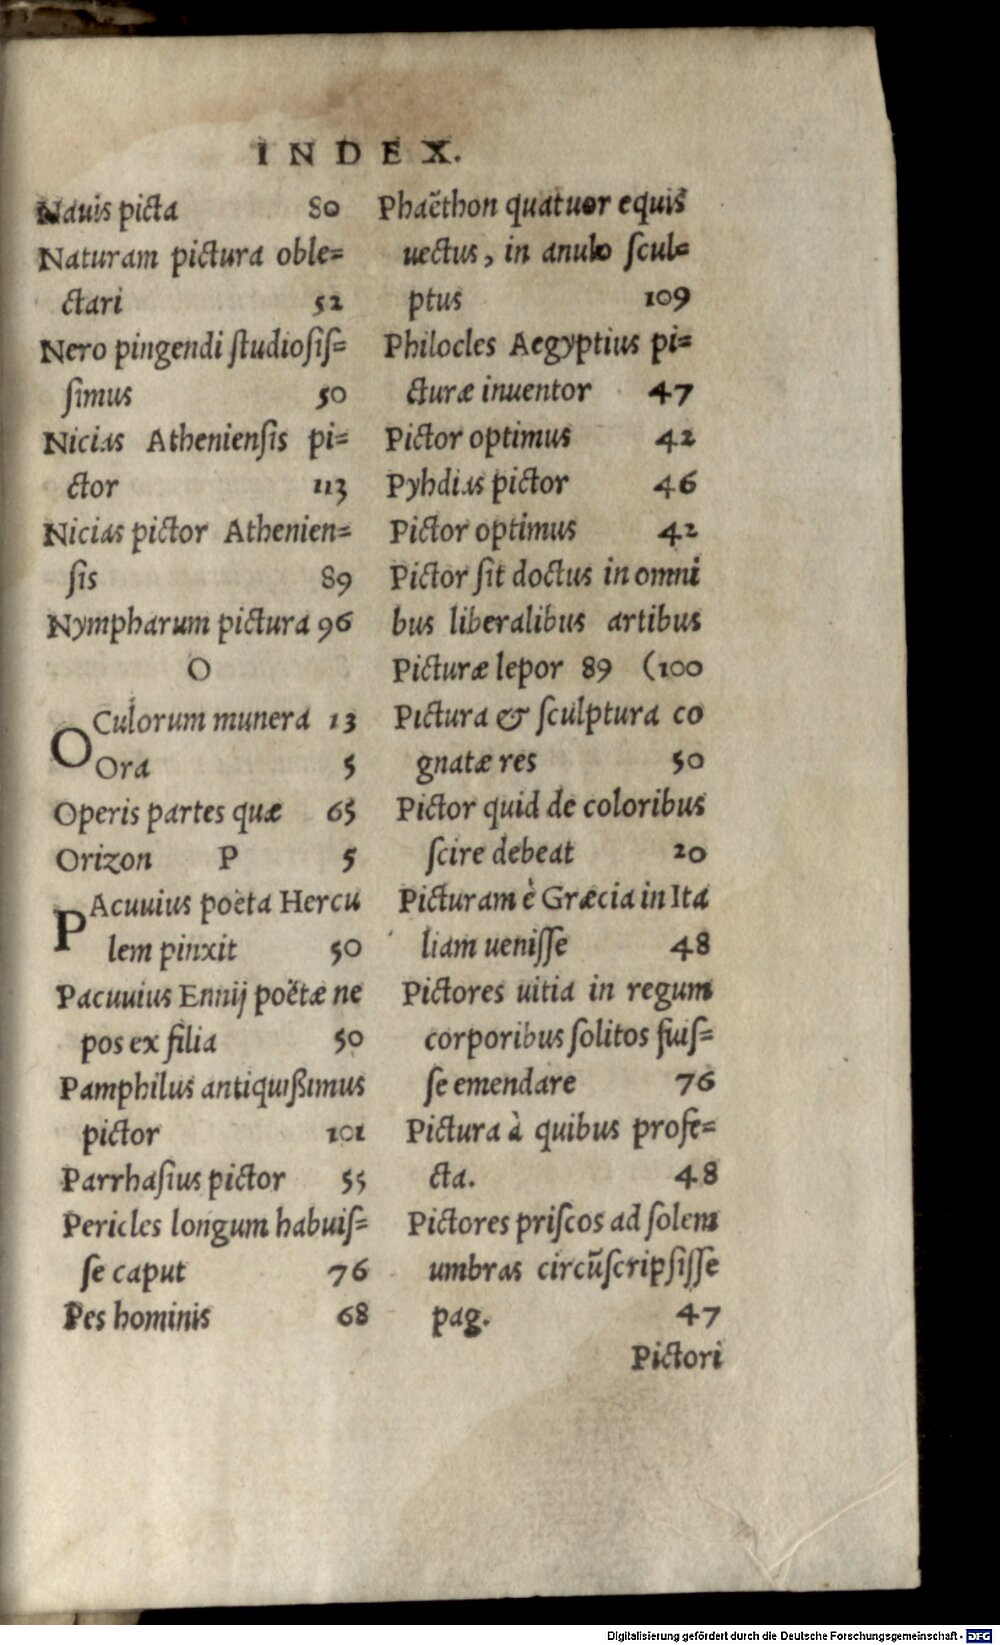 INDEX.
Nauis picta 80
Naturam pictura oble=
ctari 52
Nero pingendi ſtudioſiſ=
ſimus 50
Nicias Athenienſis pi=
ctor 113
Nicias pictor Athenien=
ſis 89
Nympharum pictura 96
O
OCulorum munera 13
Ora 5
Operis partes quæ 65
Orizon P 5
PAcuuius poëta Hercu
lem pinxit 50
Pacuuius Ennij poëtæ ne
pos ex filia 50
Pamphilus antiquißimus
pictor 101
Parrhaſius pictor 55
Pericles longum habuiſ=
ſe caput 76
Pes hominis 68
Phaëthon quatuor equis
uectus, in anulo ſcul=
ptus 109
Philocles Aegyptius pi=
cturæ inuentor 47
Pictor optimus 42
Pyhdias pictor 46
Pictor optimus 42
Pictor ſit doctus in omni
bus liberalibus artibus
Picturæ lepor 89 (100
Pictura & ſculptura co
gnatæ res 50
Pictor quid de coloribus
ſcire debeat 20
Picturam è Græcia in Ita
liam ueniſſe 48
Pictores uitia in regum
corporibus ſolitos fuiſ=
ſe emendare 76
Pictura à quibus profe=
cta. 48
Pictores priſcos ad ſolem
umbras circũſcripſiſſe
pag. 47
Pictori
Digitalisierung gefördert durch die Deutsche Forschungsgemeinschaft - DFG